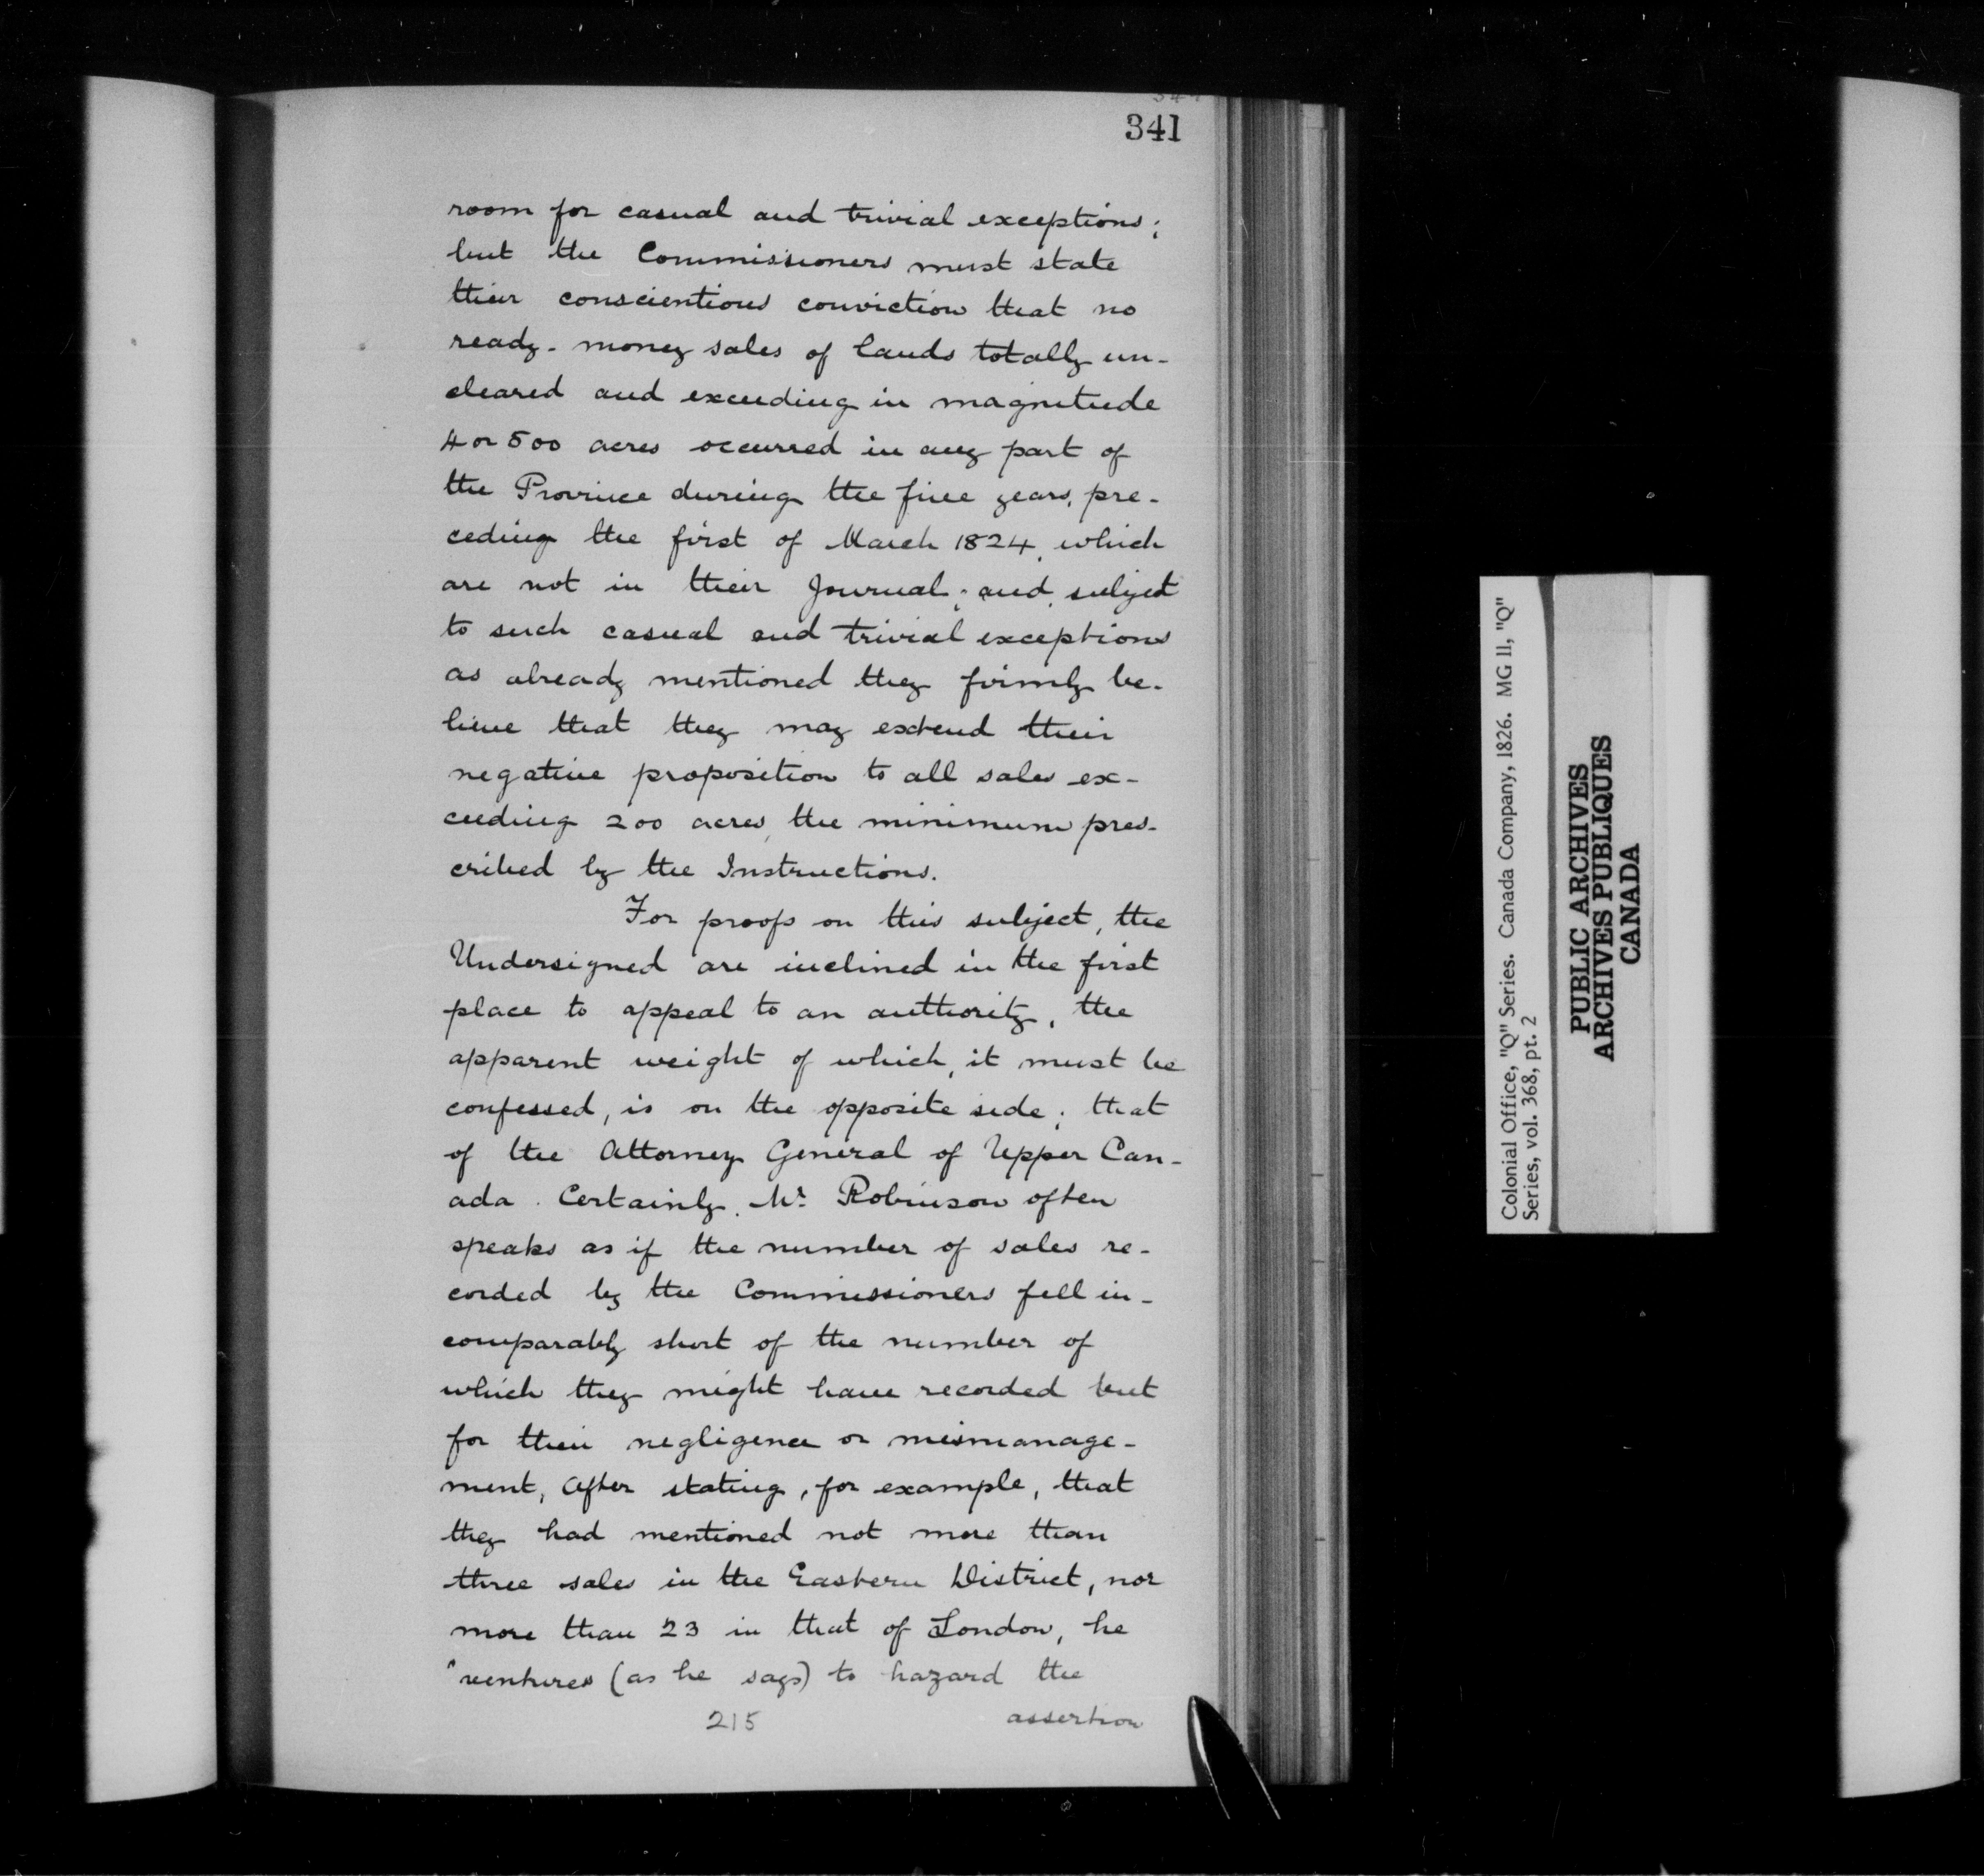 341
room for casual and trivial exceptions;
but the Commissioners must state
their conscientious conviction that no
ready-money sales of lands totally un-
cleared and exceeding in magnitude
4 or 500 acres occurred in any part of
the Province during the five years, pre-
ceding the first of March 1824, which
are not in their Journal; and, subject
to such casual and trivial exceptions
as already mentioned they firmly be-
lieve that they may extend their
negative proposition to all sales ex-
ceeding 200 acres, the minimum pres-
cribed by the Instructions.
For proofs on this subject, the
Undersigned are inclined in the first
place to appeal to an authority, the
apparent weight of which, it must be
confessed, is on the opposite side; that
of the Attorney General of Upper Can-
ada. Certainly, Mr. Robinson often
speaks as if the number of sales re-
corded by the Commissioners fell in-
comparably short of the number of
which they might have recorded but
for their negligence or mismanage-
ment, After stating, for example, that
they had mentioned not more than
three sales in the Eastern District, nor
more than 23 in that of London, he
"ventures (as he says) to hazard the
215 assertion
Colonial Office, "Q" Series. Canada Company, 1826. MG 11, "Q"
Series, vol. 368, pt. 2
PUBLIC ARCHIVES
ARCHIVES PUBLIQUES
CANADA